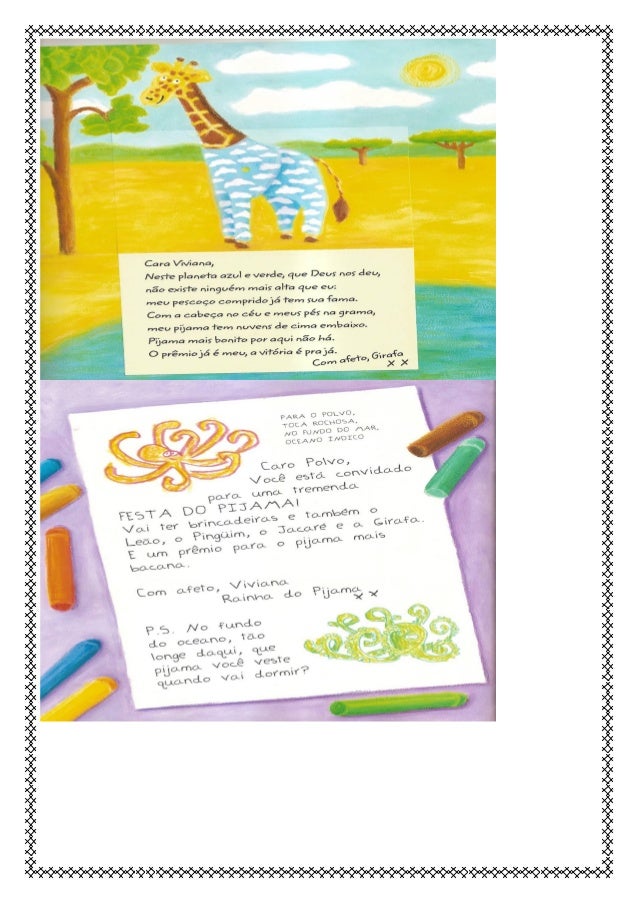 Cara Viviana,
Neste planeta azul e verde, que Deus nos deu,
não existe ninguém mais alta que eu:
meu pescoço comprido já tem sua fama.
Com a cabeça no céu e meus pés na grama,
meu pijama tem nuvens de cima embaixo.
Pijama mais bonito por aqui não há.
O prêmio já é meu, a vitória é pra já.
Com afeto, Girafa
x x
PARA O POLVO,
TOCA ROCHOSA,
NO FUNDO DO MAR,
OCEANO ÍNDICO
Caro Polvo,
Você está convidado
para uma tremenda
FESTA DO PIJAMA!
Vai ter brincadeiras e também o
Leão, o Pingüim, o Jacaré e a Girafa.
E um prêmio para o pijama mais
bacana.
Com afeto, Viviana
Rainha do Pijama
x x
P.S. No fundo
do oceano, tão
longe daqui, que
pijama você veste
quando vai dormir?